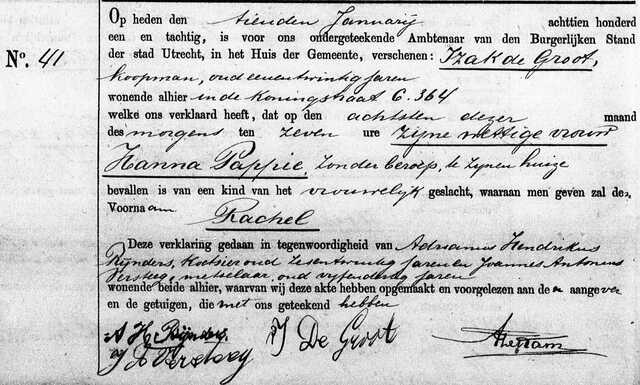 Op heden den tienden Januarij achttien honderd
een en tachtig, is voor ons ondergeteekende Ambtenaar van den Burgerlijken Stand
der stad Utrecht, in het Huis der Gemeente, verschenen: Izak de Groot,
N°. 41
koopman, oud eenentwintig jaren
wonende alhier in de Koningstraat C. 364
welke ons verklaard heeft, dat op den achtsten dezer maand
des morgens ten zeven ure zijne wettige vrouw
Hanna Pappie, zonder beroep, te zijnen huize
bevallen is van een kind van het vrouwelijk geslacht, waaraan men geven zal de
Voornaam Rachel
Deze verklaring gedaan in tegenwoordigheid van Adrianus Hendrikus
Rijnders, koetsier oud zesentwintig jaren en Joannes Antonius
Versteeg, metselaar, oud vijfendertig jaren
wonende beide alhier, waarvan wij deze akte hebben opgemaakt en voorgelezen aan de aangever
en de getuigen, die met ons geteekend hebben
A H Rijnders I De Groot
J A Versteeg